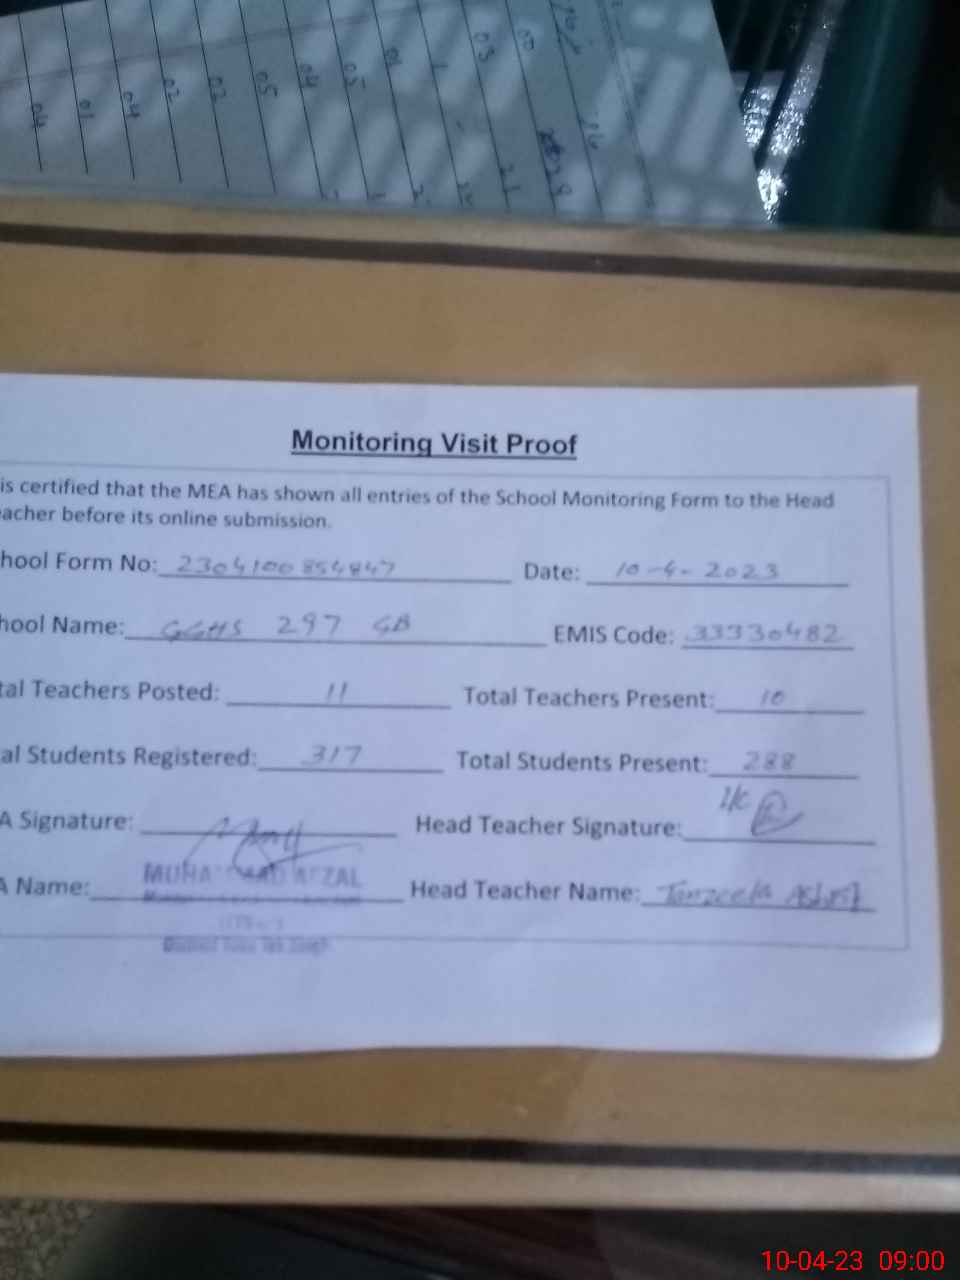 04 01 04 02 02 05 04 05 01 03 00
Monitoring Visit Proof
is certified that the MEA has shown all entries of the School Monitoring Form to the Head
acher before its online submission.
hool Form No: 2304100854847 Date: 10-4-2023
hool Name: GGHS 297 GB EMIS Code: 33330482
tal Teachers Posted: 11 Total Teachers Present: 10
al Students Registered: 317 Total Students Present: 288
A Signature: Head Teacher Signature: I/C
A Name: MUHAMMAD AFZAL Head Teacher Name: Tanzeela Ashraf
District Toba Tek Singh
10-04-23 09:00